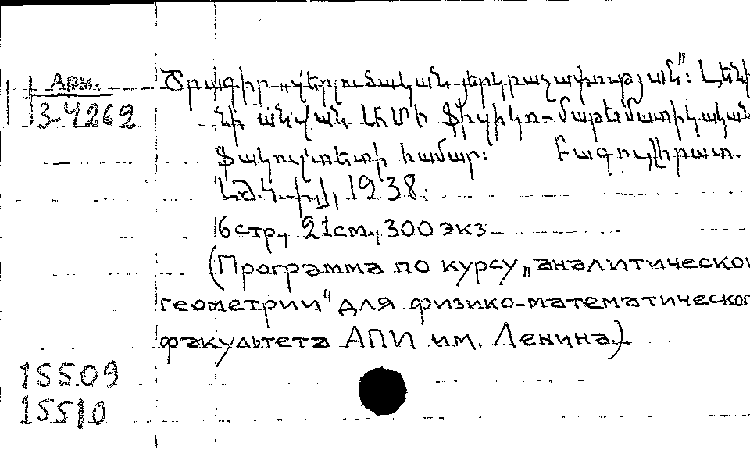 Арм.
3-4262
Ծրագիր „վերլուծական երկրաչափության”: Լենի
նի անվան ԱՄԻ ֆիզիկո-մաթեմատիկական
ֆակուլտետի համար:
1938.
6 стр., 21 см., 300 экз
(Программа по курсу „аналитической
геометрии" для физико-математического
факультета АПИ им. Ленина)
15509
15510